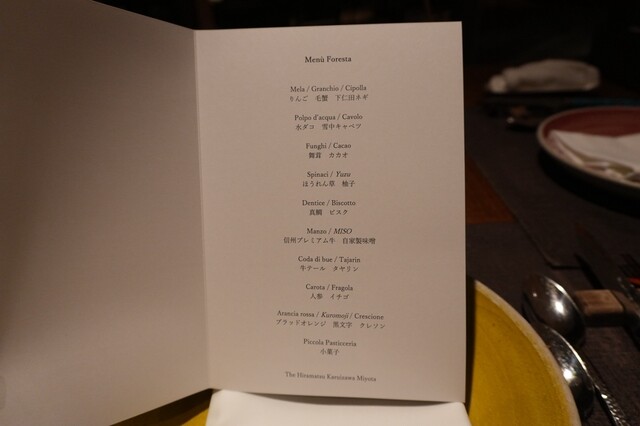 Menù Foresta
Mela / Granchio / Cipolla
りんご　毛蟹　下仁田ネギ
Polpo d'acqua / Cavolo
水ダコ　雪中キャベツ
Funghi / Cacao
舞茸　カカオ
Spinaci / Yuzu
ほうれん草　柚子
Dentice / Biscotto
真鯛　ビスク
Manzo / MISO
信州プレミアム牛　自家製味噌
Coda di bue / Tajarin
牛テール　タヤリン
Carota / Fragola
人参　イチゴ
Arancia rossa / Kuromoji / Crescione
ブラッドオレンジ　黒文字　クレソン
Piccola Pasticceria
小菓子
The Hiramatsu Karuizawa Miyota